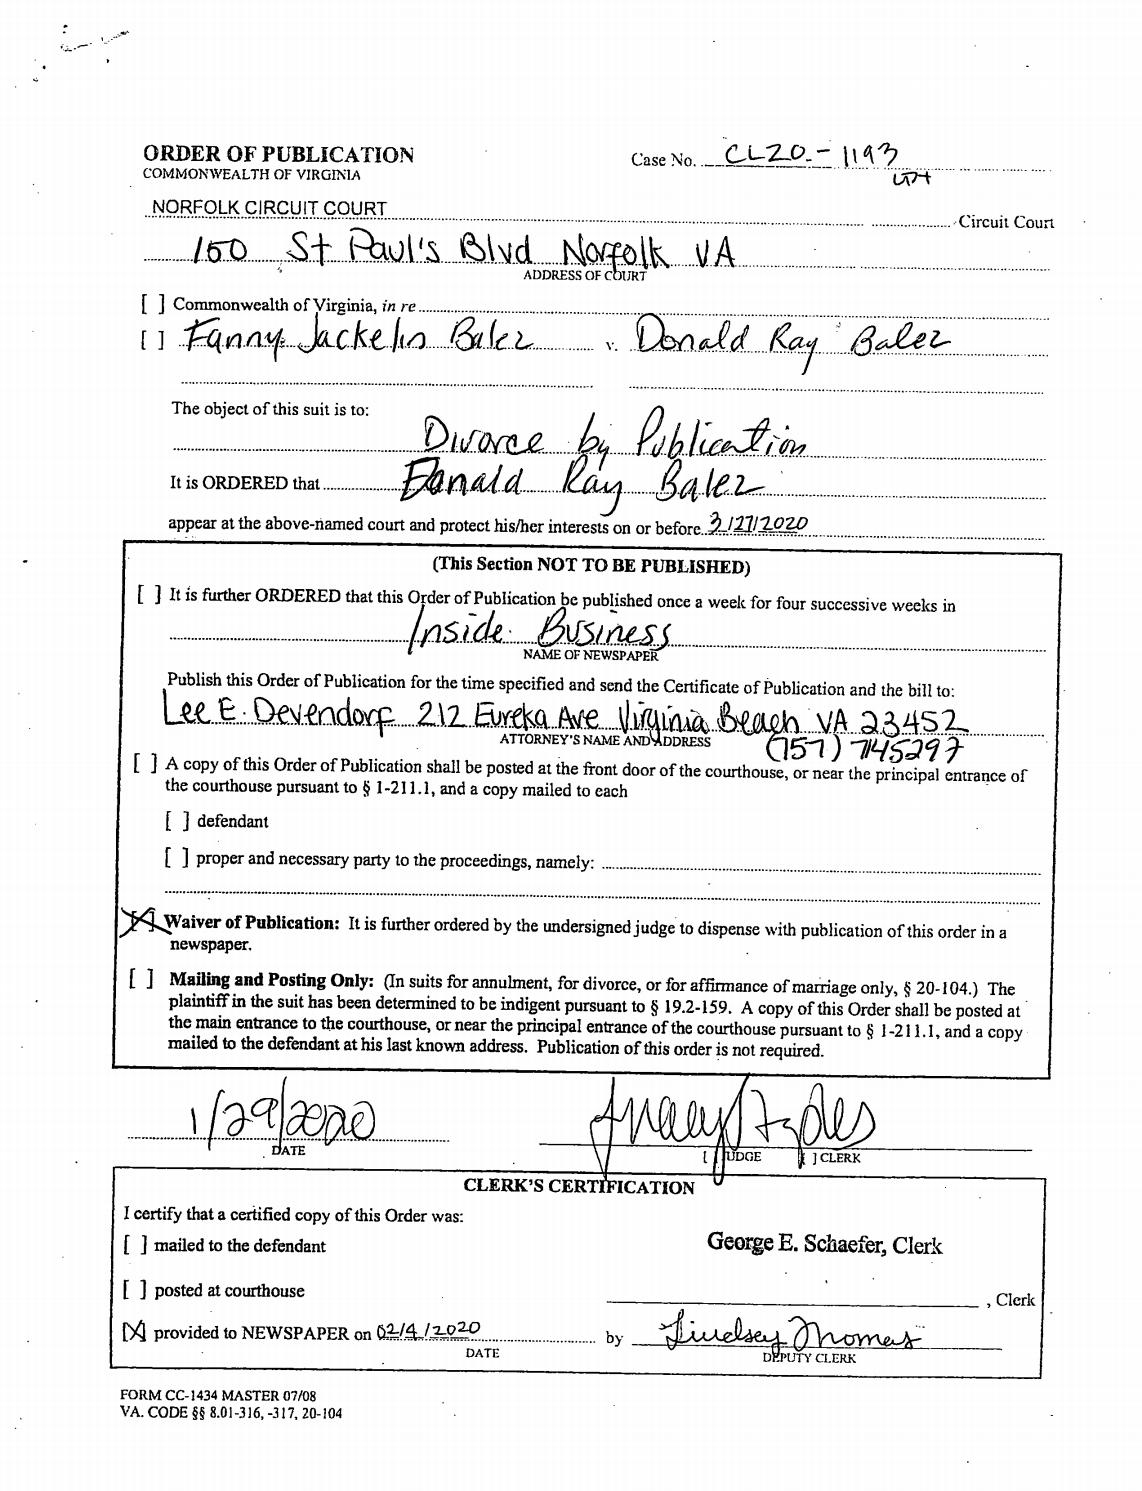 ORDER OF PUBLICATION
COMMONWEALTH OF VIRGINIA
Case No. CL20-1193
NORFOLK CIRCUIT COURT Circuit Court
150 St Paul's Blvd Norfolk VA
ADDRESS OF COURT
[ ] Commonwealth of Virginia, in re
[ ] Fanny Jackelin Balez v. Donald Ray Balez
The object of this suit is to:
Divorce by Publication
It is ORDERED that Donald Ray Balez
appear at the above-named court and protect his/her interests on or before 3/27/2020
(This Section NOT TO BE PUBLISHED)
[ ] It is further ORDERED that this Order of Publication be published once a week for four successive weeks in
Inside Business
NAME OF NEWSPAPER
Publish this Order of Publication for the time specified and send the Certificate of Publication and the bill to:
Lee E. Devendorf 212 Eureka Ave Virginia Beach VA 23452
ATTORNEY'S NAME AND ADDRESS (757) 7145297
[ ] A copy of this Order of Publication shall be posted at the front door of the courthouse, or near the principal entrance of
the courthouse pursuant to § 1-211.1, and a copy mailed to each
[ ] defendant
[ ] proper and necessary party to the proceedings, namely:
[X] Waiver of Publication: It is further ordered by the undersigned judge to dispense with publication of this order in a
newspaper.
[ ] Mailing and Posting Only: (In suits for annulment, for divorce, or for affirmance of marriage only, § 20-104.) The
plaintiff in the suit has been determined to be indigent pursuant to § 19.2-159. A copy of this Order shall be posted at
the main entrance to the courthouse, or near the principal entrance of the courthouse pursuant to § 1-211.1, and a copy
mailed to the defendant at his last known address. Publication of this order is not required.
1/29/2020
DATE
[ ] JUDGE [ ] CLERK
CLERK'S CERTIFICATION
I certify that a certified copy of this Order was:
[ ] mailed to the defendant
George E. Schaefer, Clerk
[ ] posted at courthouse
, Clerk
[X] provided to NEWSPAPER on 02/4/2020 by Lindsey Thomas
DATE DEPUTY CLERK
FORM CC-1434 MASTER 07/08
VA. CODE §§ 8.01-316, -317, 20-104